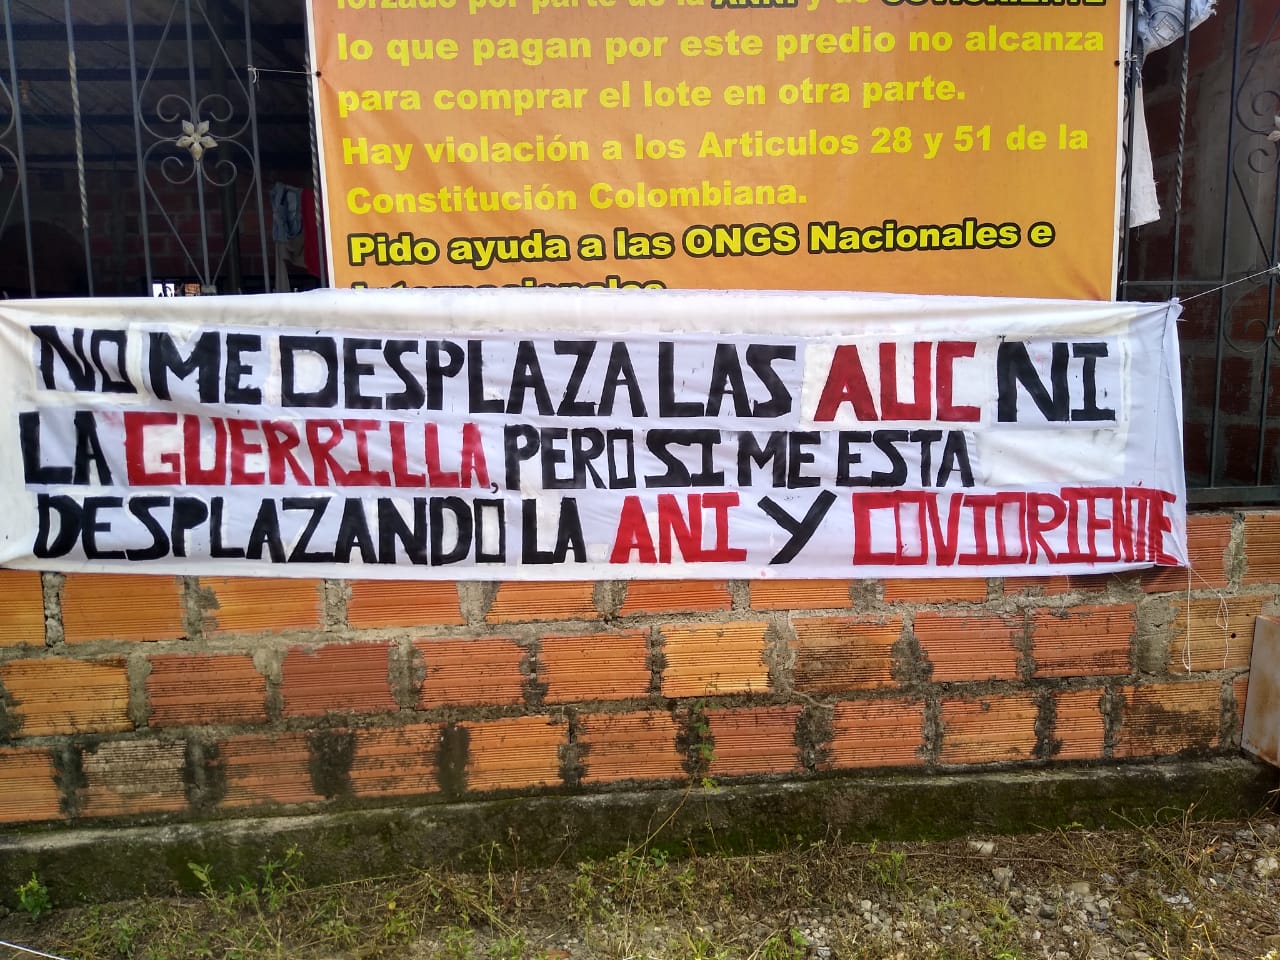 forzado por parte de la ANNI y de COVIORIENTE
lo que pagan por este predio no alcanza
para comprar el lote en otra parte.
Hay violación a los Articulos 28 y 51 de la
Constitución Colombiana.
Pido ayuda a las ONGS Nacionales e
Internacionales
NO ME DESPLAZA LAS AUC NI
LA GUERRILLA, PERO SI ME ESTA
DESPLAZANDO LA ANI Y COVIORIENTE